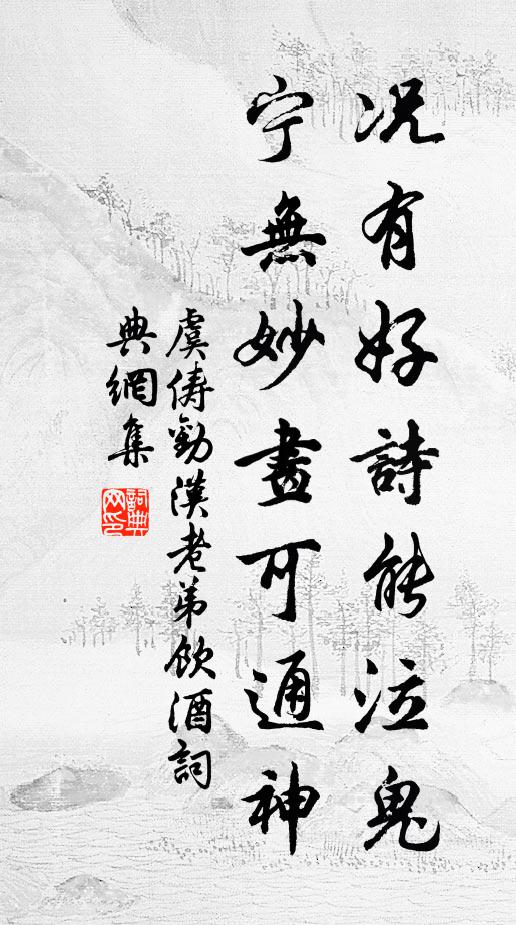 况有好詩能泣鬼
宁無妙畫可通神
虞儔勸漢老弟飲酒詞
典網集
詞典
网印